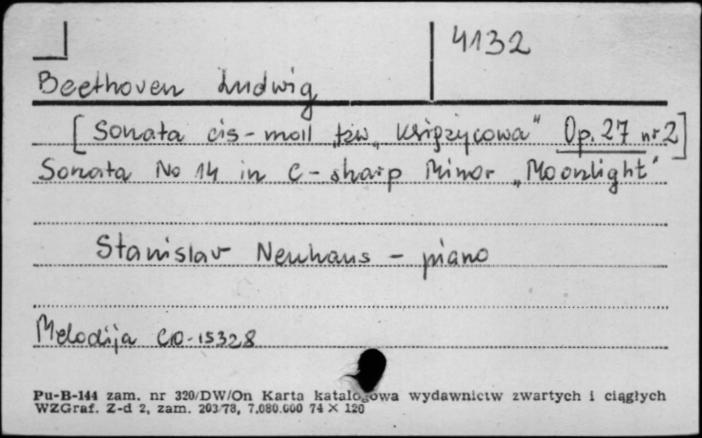 4132
Beethoven Ludwig
[Sonata cis-moll „tzw „Księżycowa" Op. 27 nr 2]
Sonata No 14 in C-sharp Minor „Moonlight"
Stanislav Neuhaus - piano
Melodija CD-15328
Pu-B-144 zam. nr 320/DW/On Karta katalogowa wydawnictw zwartych i ciągłych
WZGraf. Z-d 2, zam. 203/78, 7.080.000 74 × 120